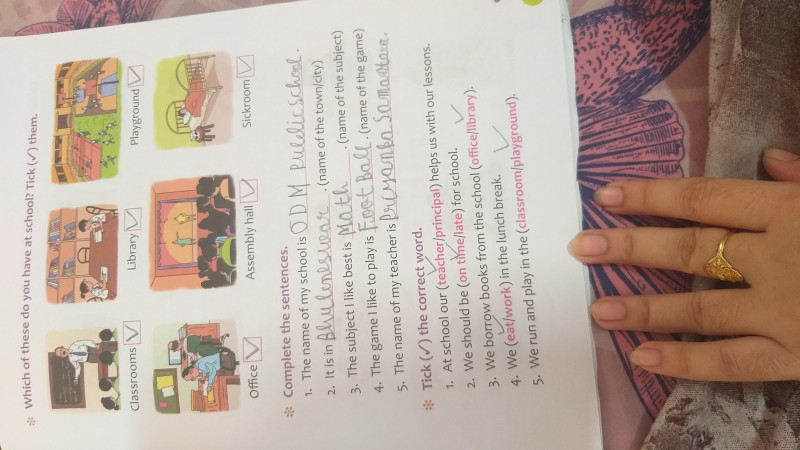 Which of these do you have at school? Tick (✓) them.
Classrooms ✓ Library ✓ Playground ✓
Office ✓ Assembly hall ✓ Sickroom ✓
Complete the sentences.
1. The name of my school is ODM Public School.
2. It is in Bhubaneswar. (name of the town/city)
3. The subject I like best is Math. (name of the subject)
4. The game I like to play is Football. (name of the game)
5. The name of my teacher is Priyanka Samantara.
Tick (✓) the correct word.
1. At school our (teacher/principal) helps us with our lessons.
2. We should be (on time/late) for school.
3. We borrow books from the school (office/library).
4. We (eat/work) in the lunch break.
5. We run and play in the (classroom/playground).